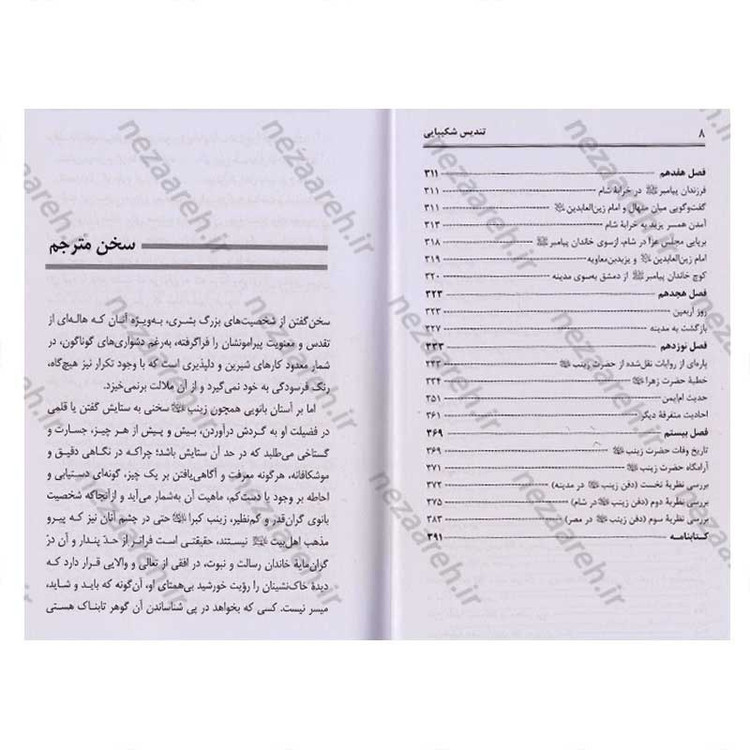 ۸ تندیس شکیبایی
فصل هفدهم ۳۱۱
فرزندان پیامبر ﷺ در خرابهٔ شام ۳۱۱
گفت‌وگویی میان منهال و امام زین‌العابدین ۳۱۱
آمدن همسر یزید به خرابهٔ شام
برپایی مجلس عزا در شام، ازسوی خاندان پیامبر ﷺ ۳۱۸
امام زین‌العابدین و یزیدبن‌معاویه ۳۱۹
کوچ خاندان پیامبر ﷺ از دمشق به‌سوی مدینه ۳۲۰
فصل هجدهم ۳۲۳
روز اربعین ۳۲۳
بازگشت به مدینه ۳۲۷
فصل نوزدهم ۳۳۳
پاره‌ای از روایات نقل‌شده از حضرت زینب
خطبهٔ حضرت زهرا ۳۳۴
حدیث ام‌ایمن ۳۵۱
احادیث متفرقهٔ دیگر ۳۶۱
فصل بیستم ۳۶۹
تاریخ وفات حضرت زینب
آرامگاه حضرت زینب ۳۷۱
بررسی نظریهٔ نخست (دفن زینب در مدینه) ۳۷۲
بررسی نظریهٔ دوم (دفن زینب در شام) ۳۷۵
بررسی نظریهٔ سوم (دفن زینب در مصر) ۳۸۳
کتابنامه ۳۹۱
سخن مترجم
سخن‌گفتن از شخصیت‌های بزرگ بشری، به‌ویژه آنان که هاله‌ای از
تقدس و معنویت پیرامونشان را فراگرفته، به‌رغم دشواری‌های گوناگون، در
شمار معدود کارهای شیرین و دلپذیری است که با وجود تکرار نیز هیچ‌گاه،
رنگ فرسودگی به خود نمی‌گیرد و از آن ملالت برنمی‌خیزد.
اما بر آستان بانویی همچون زینب سخنی به ستایش گفتن یا قلمی
در فضیلت او به گردش درآوردن، بیش و پیش از هر چیز، جسارت و
گستاخی می‌طلبد که در حد آن ستایش باشد؛ چراکه در نگاهی دقیق و
موشکافانه، هرگونه معرفت و آگاهی‌یافتن بر یک چیز، گونه‌ای دستیابی و
احاطه بر وجود یا دست‌کم، ماهیت آن به‌شمار می‌آید و ازآنجاکه شخصیت
بانوی گران‌قدر و کم‌نظیر، زینب کبرا حتی در چشم آنان نیز که پیرو
مذهب اهل‌بیت نیستند، حقیقتی است فراتر از حدّ پندار و آن دُرّ
گران‌مایهٔ خاندان رسالت و نبوت، در افقی از تعالی و والایی قرار دارد که
دیدهٔ خاک‌نشینان را رؤیت خورشید بی‌همتای او، آن‌گونه که باید و شاید،
میسر نیست. کسی که بخواهد در پی شناساندن آن گوهر تابناک هستی
nezaareh.ir
nezaareh.ir
nezaareh.ir
nezaareh.ir
nezaareh.ir
nezaareh.ir
nezaareh.ir
nezaareh.ir